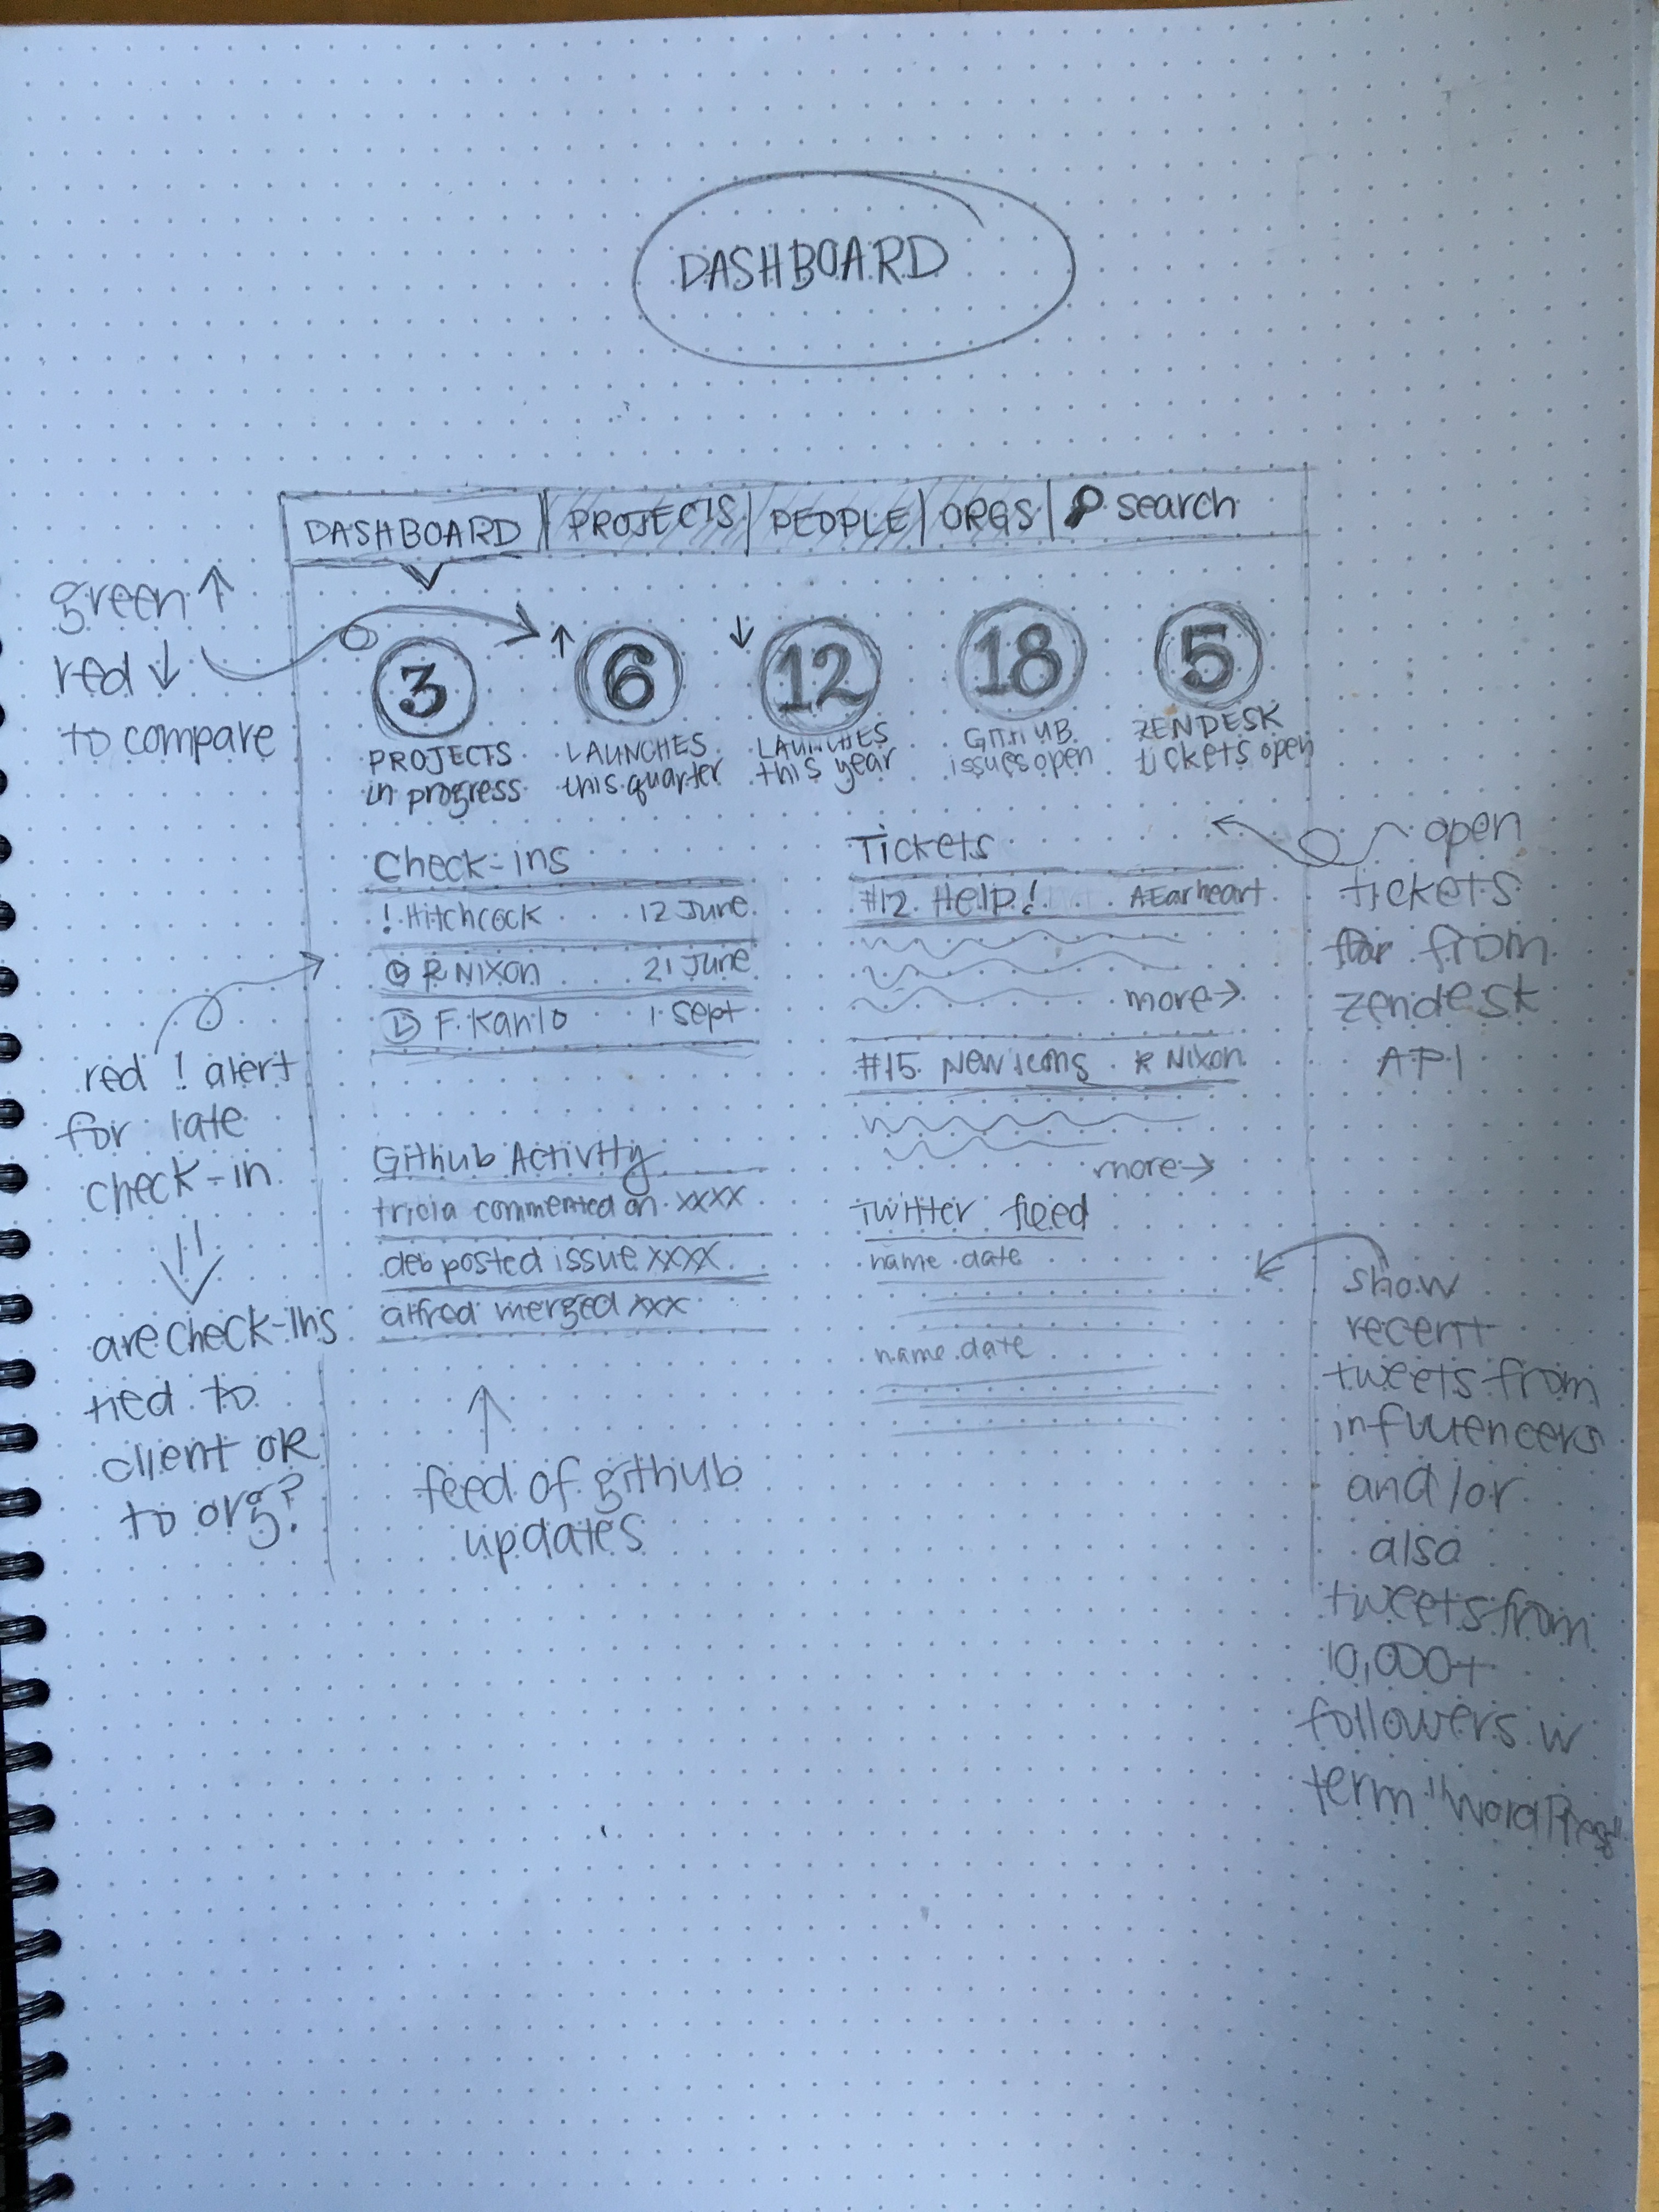 DASHBOARD
DASHBOARD PROJECTS PEOPLE ORGS search
green ↑
red ↓
to compare
↑ ↓
3 6 12 18 5
PROJECTS
in progress
LAUNCHES
this quarter
LAUNCHES
this year
GITHUB
issues open
ZENDESK
tickets open
Check-ins
! Hitchcock 12 June
R Nixon 21 June
F. Kahlo 1 Sept
red ! alert
for late
check-in
are check-ins
tied to
client OR
to org?
Github Activity
tricia commented on xxxx
deb posted issue xxxx
alfred merged xxx
feed of github
updates
Tickets
#12 Help! A Earheart
more →
#15 New icons R Nixon
more →
open
tickets
from
zendesk
API
Twitter feed
name date
name date
show
recent
tweets from
influencers
and/or
also
tweets from
10,000+
followers w
term "WordPress"